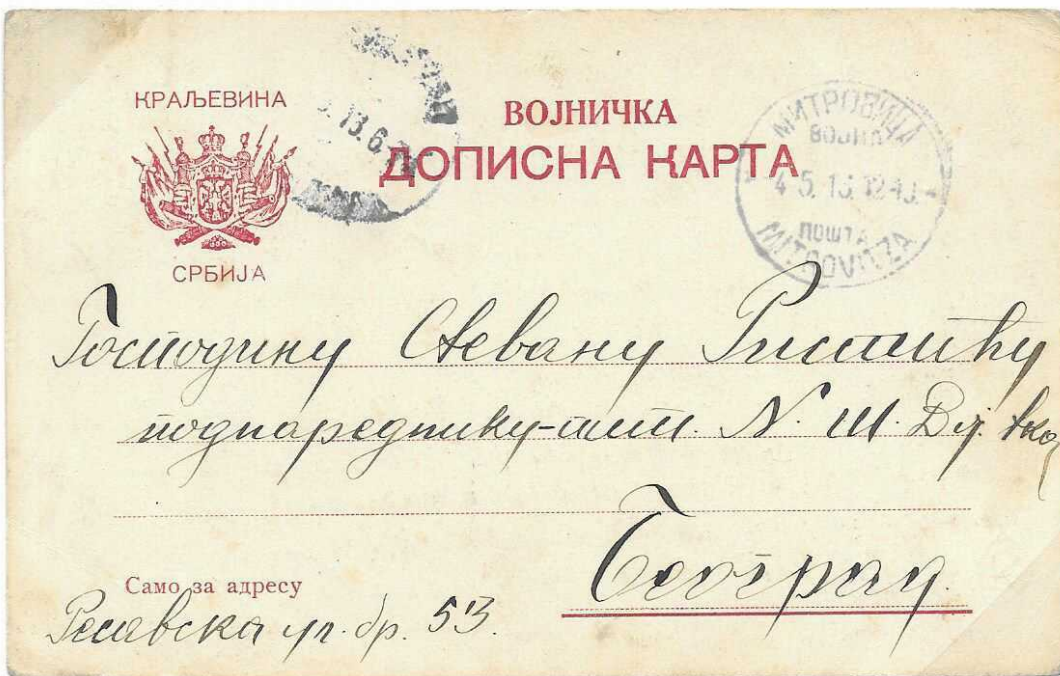 КРАЉЕВИНА
СРБИЈА
ВОЈНИЧКА
ДОПИСНА КАРТА
МИТРОВИЦА
ВОЈНА
4 5. 13. 12
ПОШТА
MITROVITZA
13.6
Господину Стевану Ристићу
подпоредник N. Ш. В
Београд.
Само за адресу
Ресавска ул. бр. 53.